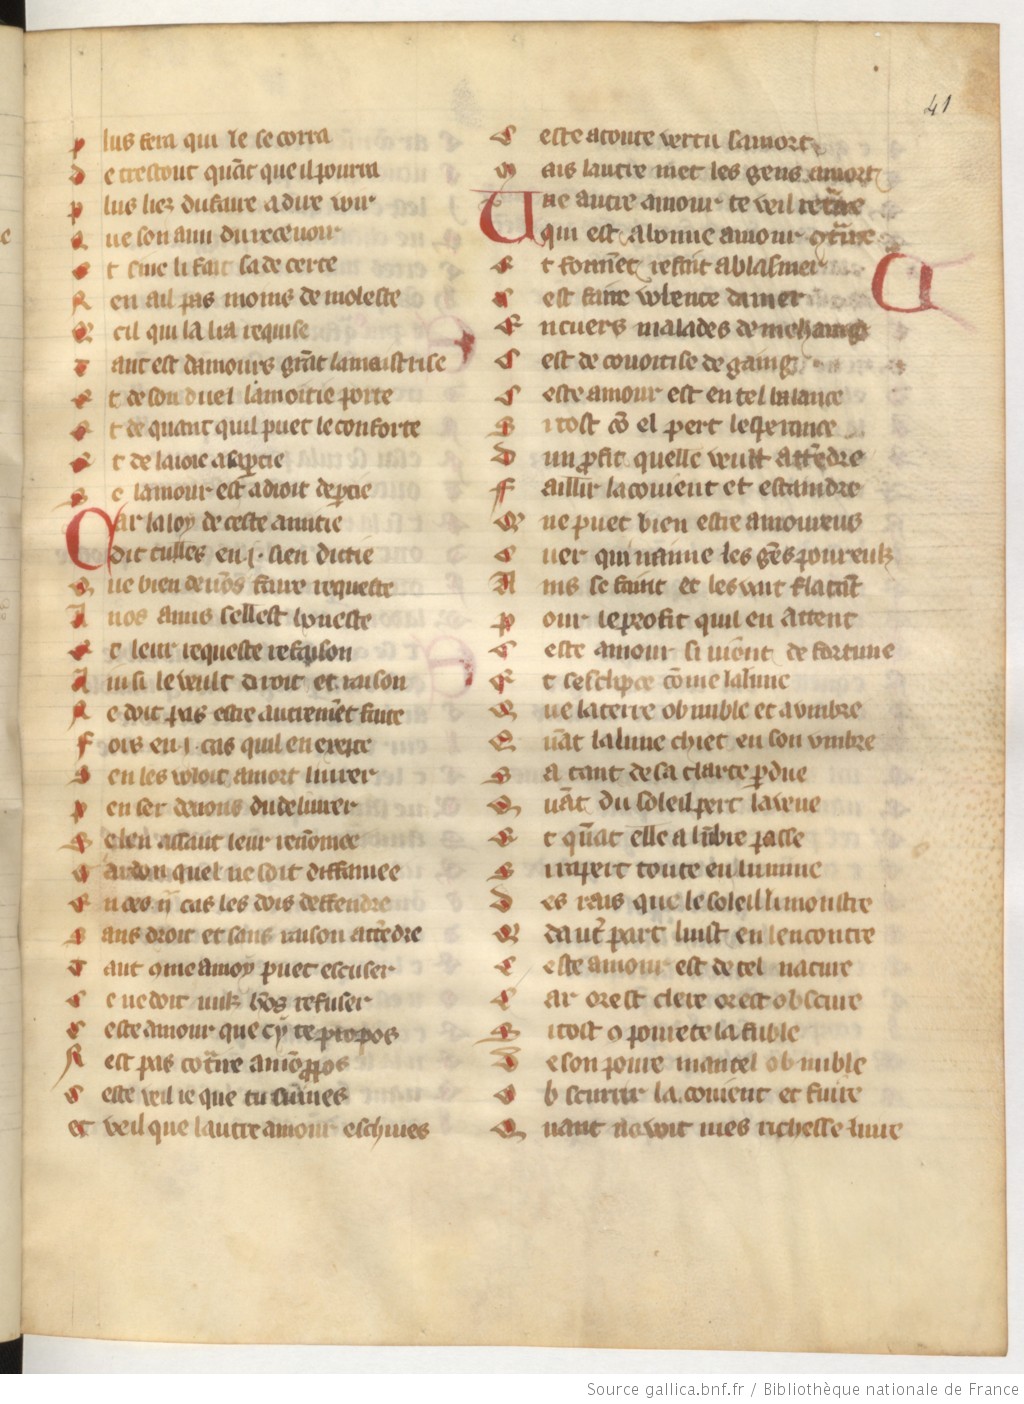 41
Plus fera qui le secorra
De trestout quāt que il pourra
Plus liez du faire a dire voir
Que son ami du recevoir
Et sine li fait sa de certe
Ren ail pas moins de moleste
Que cil qui la lia requise
Tant est damours grāt la maistrise
Et de son duel la moitie porte
Et de quant quil puet le conforte
Et de la ioie a sa partie
Se lamour est a droit departie
Car la loy de ceste amitie
Dit tulles en .i. sien dictie
Que bien devōs faire requeste
A nos amis selle est honeste
Et leur requeste refaison
Ainsi le veult droit et raison
Ne doit pas estre autremēt faite
Fors en .i. cas quil en excepte
Sen les voloit a mort livrer
Penser devons du delivrer
Se len assaut leur renōmee
Gardon quel ne soit diffamee
En ces .ii. cas les dois deffendre
Sans droit et sans raison attēdre
Tant 9me amoy puet escuser
Ce ne doit nulz hōs refuser
Ceste amour que cy te propos
Nest pas cōtre a mō propos
Ceste veil ie que tu suives
et veil que lautre amour eschives
Ceste a toute vertu samort
Mais lautre met les gens a mort
Une autre amour te veil retraire
Qui est a bonne amour 9traire
Et formēt refait a blasmer
Cest fainte volente damer
En cuers malades de mehaing
Cest de covoitise de gaing
Ceste amour est en tel balance
Si tost cō el pert lesperance
Du profit quelle veult attēdre
Faillir la covient et estaindre
Que puet bien estre amoureus
Cuer qui naime les gēs pour eulz
Ains se faint et les vait flatāt
Pour le profit quil en attent
Ceste amour si vient de fortune
Et sesclipce cōme la lune
Que la terre obnuble et aumbre
Quāt la lune chiet en son umbre
Sa tant de sa clarte perdue
Quāt du soleil pert la veue
Et quāt elle a lūbre passe
Si rapert toute enlumine
Des rais que le soleil li monstre
Qui dautre part luist en lencontre
Ceste amour est de tel nature
Car or est clere or est obscure
Si tost 9 povrete la fuble
De son povre mantel obnuble
Obscurcir la covient et fuire
Quant ne voit mes richesse luire